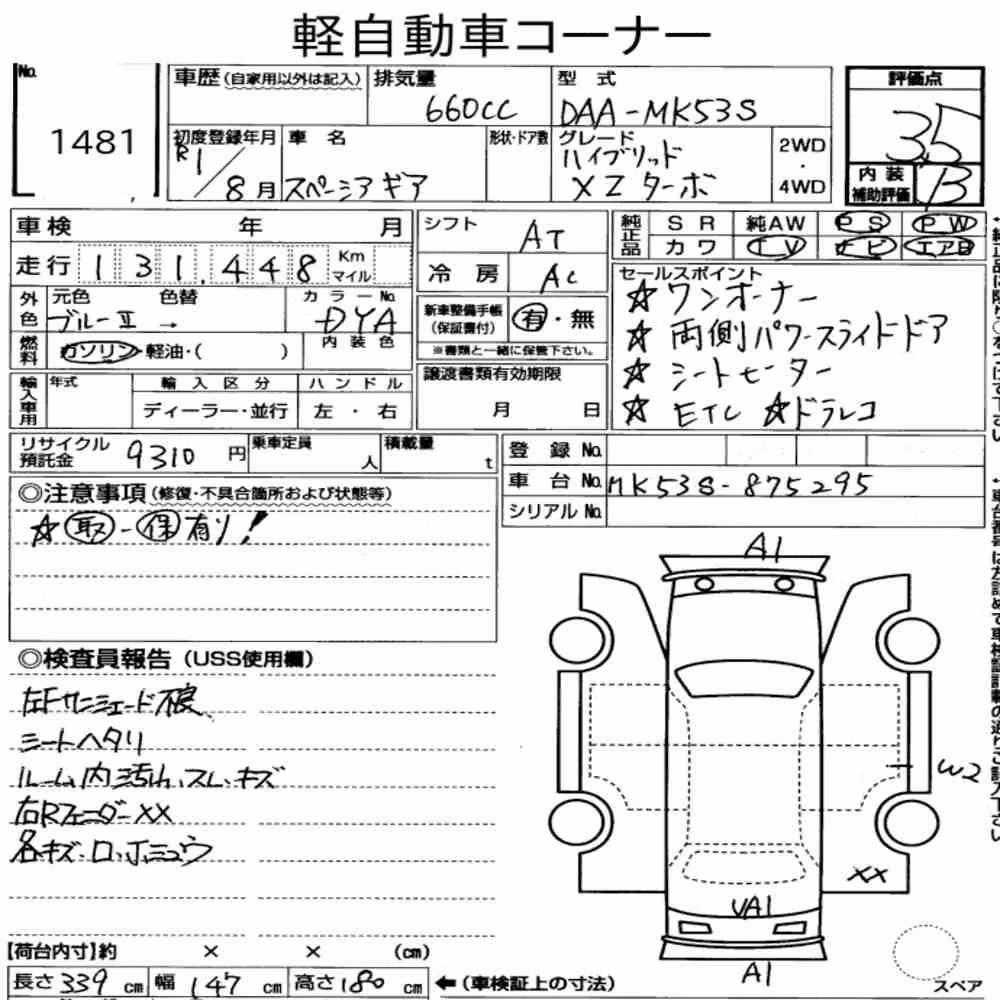 軽自動車コーナー
No.
1481
車歴(自家用以外は記入)
排気量
660CC
型式
DAA-MK53S
評価点
3.5
内装
補助評価
B
初度登録年月
R1/8月
車名
スペーシアギア
形状・ドア数
グレード
ハイブリッド
XZターボ
2WD
・
4WD
車検 年 月
走行 131,448 Km
マイル
外色
元色
ブルーII →
色替
カラーNo.
DYA
内装色
燃料
ガソリン・軽油・( )
輸入車用
年式
輸入区分
ディーラー・並行
ハンドル
左・右
シフト
AT
冷房
AC
新車整備手帳
(保証書付)
有・無
※書類と一緒に保管下さい。
譲渡書類有効期限
月 日
純正品
SR 純AW PS PW
カワ TV ナビ エアB
セールスポイント
☆ワンオーナー
☆両側パワースライドドア
☆シートヒーター
☆ETC ☆ドラレコ
リサイクル
預託金
9310円
乗車定員
人
積載量
t
登録No.
車台No. MK53S-875295
シリアルNo.
◎注意事項(修復・不具合箇所および状態等)
☆取-保有り!
◎検査員報告(USS使用欄)
左Fサンシェード不良
シートヘタリ
ルーム内汚れ、スレ・キズ
右RフェンダーXX
各キズ・凹・
A1
W2
XX
UA1
A1
スペア
【荷台内寸】約 × × (cm)
長さ339cm 幅147cm 高さ180cm
←(車検証上の寸法)